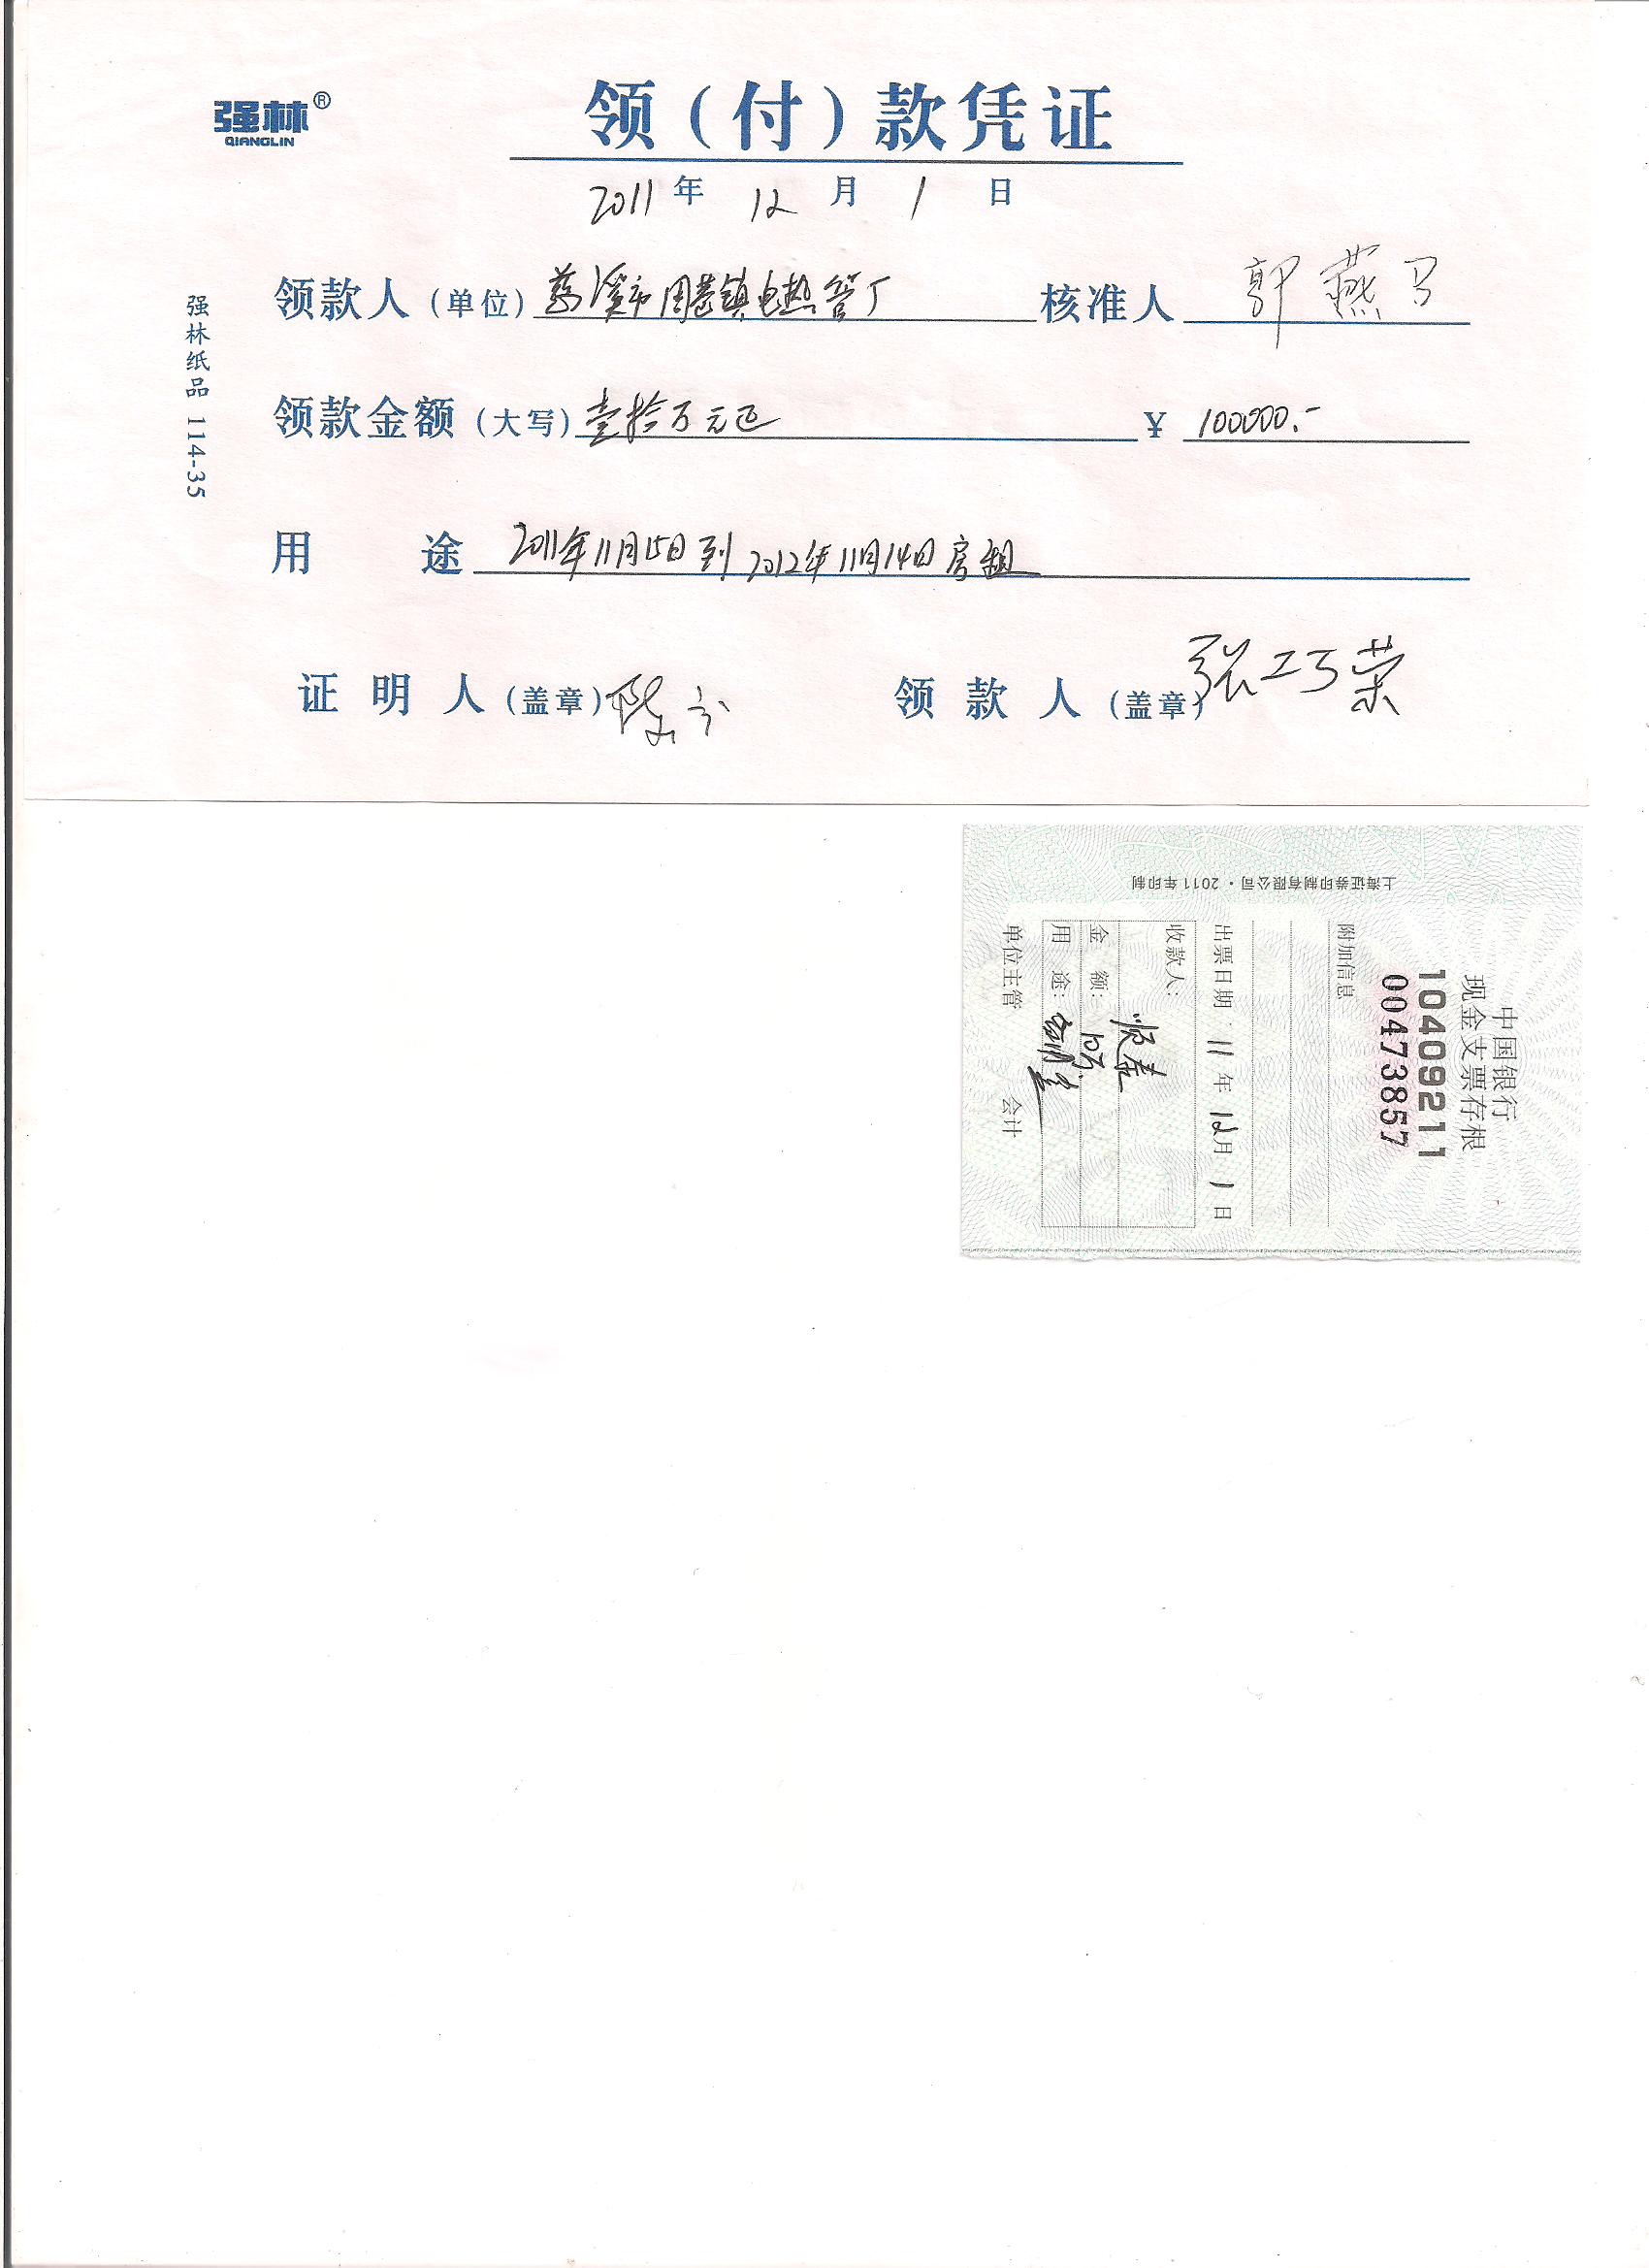 强林®
QIANGLIN
领（付）款凭证
2011年 12月 1日
领款人（单位）慈溪市周巷镇电热管厂 核准人 郭燕
领款金额（大写）壹拾万元正 ¥ 100000.-
用 途 2011年11月15日到2012年11月14日房租
证明人（盖章）陈 领款人（盖章）张巧荣
强林纸品 114-35
中国银行
现金支票存根
10409211
00473857
附加信息
出票日期 11年 12月 1日
收款人：
金 额： 10万
用 途：
单位主管 会计
上海证券印制有限公司·2011年印制